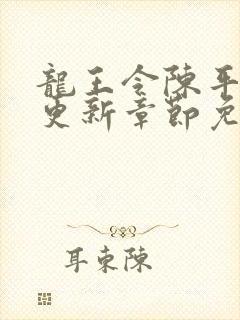 龍王令陳平
更新章節免
耳東陳